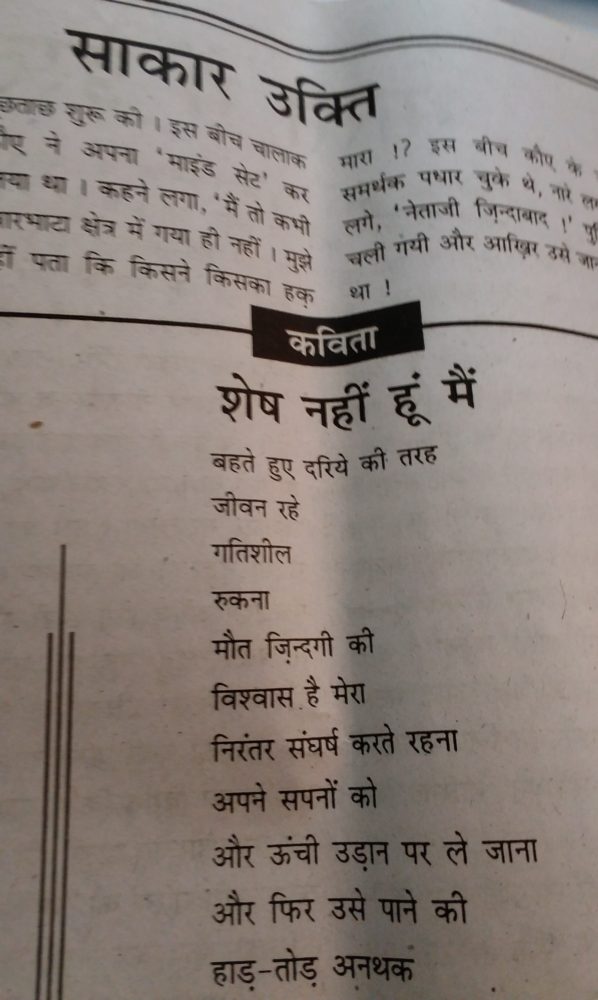 साकार उक्ति
शुरू की । इस बीच चालाक
ने अपना ‘माइंड सेट’ कर
था । कहने लगा, ‘मैं तो कभी
क्षेत्र में गया ही नहीं । मुझे
पता कि किसने किसका हक़
मारा !? इस बीच कौए के
समर्थक पधार चुके थे, नारे
लगे, ‘नेताजी ज़िन्दाबाद !’
चली गयी और आख़िर उसे
था !
कविता
शेष नहीं हूं मैं
बहते हुए दरिये की तरह
जीवन रहे
गतिशील
रुकना
मौत ज़िन्दगी की
विश्वास है मेरा
निरंतर संघर्ष करते रहना
अपने सपनों को
और ऊंची उड़ान पर ले जाना
और फिर उसे पाने की
हाड़-तोड़ अनथक